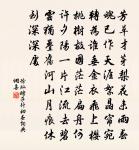 芳草才芽梨花未雨春
魂已作天涯絮晶簾宛
轉為誰垂金衣飛上櫻
桃樹故國茫茫扁舟何
許夕陽一片江流去碧
雲猶疊舊山河月痕休
到深深處
徐灿踏莎行初春